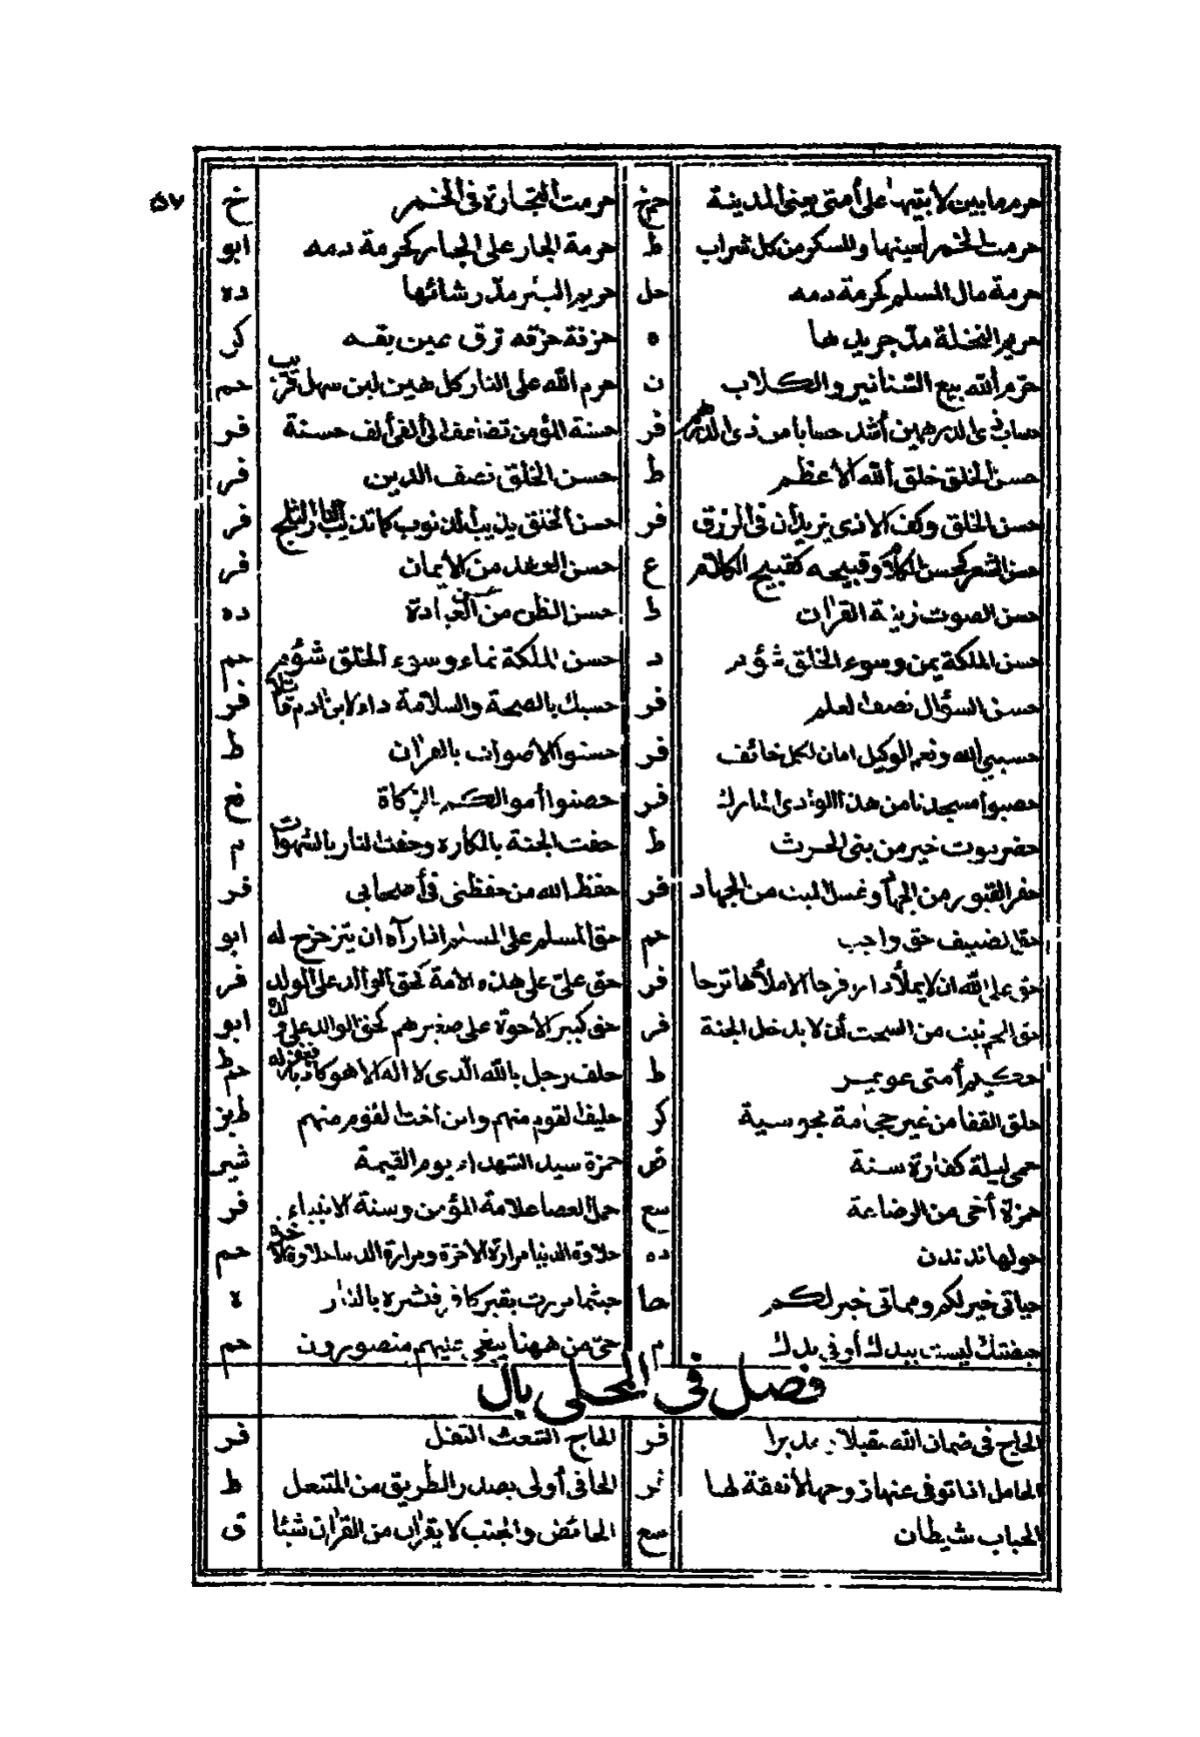 ٥٧
حرم ما بين لابتيها على أمتى يعنى المدينة خم حرمت التجارة فى الخمر خ
حرمت الخمر لعينها والسكر من كل شراب ط حرمة الجار على الجار كحرمة دمه ابو
حرمة مال المسلم كحرمة دمه حل حريم البئر مدّ رشائها ده
حريم النخلة مدّ جريدها ه حزقة حزقه ترق عين بقه كر
حرّم الله بيع السنانير والكلاب ن حرم الله على النار كل هين لين سهل قريب حم
حساب ذى الدرهمين أشد حسابا من ذى الدرهم فر حسنة المؤمن تضاعف الى ألفى ألف حسنة فر
حسن الخلق خلق الله الأعظم ط حسن الخلق نصف الدين فر
حسن الخلق وكف الاذى يزيدان فى الرزق فر حسن الخلق يذيب الذنوب كما تذيب النار الثلج فر
حسن الشعر كحسن الكلام وقبيحه كقبيح الكلام ع حسن العهد من الأيمان فر
حسن الصوت زينة القرآن ط حسن الظن من حسن العبادة ده
حسن الملكة يمن وسوء الخلق شؤم د حسن الملكة نماء وسوء الخلق شؤم حم
حسن السؤال نصف العلم فر حسبك بالصحة والسلامة داء لابن ادم قاتلة فر
حسبي الله ونعم الوكيل امان لكل خائف فر حسنوا الاصوات بالقرآن ط
حصبوا مسجدنا من هذا الوادى المبارك فر حصنوا أموالكم بالزكاة نع
حضرموت خير من بنى الحرث ط حفت الجنة بالمكاره وحفت النار بالشهوات م
حفر القبور من الجهاد وغسل الميت من الجهاد فر حفظ الله من حفظنى فى أصحابى فر
حق الضيف حق واجب حم حق المسلم على المسلم اذا رآه ان يتزحزح له ابو
حق على الله ان لا يملأ دار فرحا الا ملأها ترحا فر حق علىّ على هذه الأمة كحق الوالد على الولد فر
حق الجسم نبت من السحت أن لا يدخل الجنة فر حق كبير الأخوة على صغيرهم كحق الوالد على ولده ابو
حكيم أمتى عويمر ط حلف رجل بالله الّذى لا اله الا هو كاذبا فغفر له حم ط
حلق القفا من غير حجامة مجوسية كر حليف القوم منهم وابن اخت القوم منهم طبز
حمى ليلة كفارة سنة ض حمزة سيد الشهداء يوم القيمة شير
حمزة أخى من الرضاعة سع حمل العصا علامة المؤمن وسنة الانبياء فر
حولها ندندن ده حلاوة الدنيا مرارة الآخرة ومرارة الدنيا حلاوة الآخرة حم
حياتى خير لكم ومماتى خير لكم حا حيثما مررت بقبر كافر فبشره بالنار ه
حيضتك ليست بيدك أو فى يدك م حىّ من ههنا يبغى عليهم منصورون حم
فصل فى المحلى بال
الحاج فى ضمان الله مقبلا ومدبرا فر الحاج الشعث التفل فر
الحامل اذا توفى عنها زوجها لا نفقة لها بر الحافى أولى بصدر الطريق من المتنعل ط
الحباب شيطان سع الحائض والجنب لا يقرأن من القرآن شيئا ق